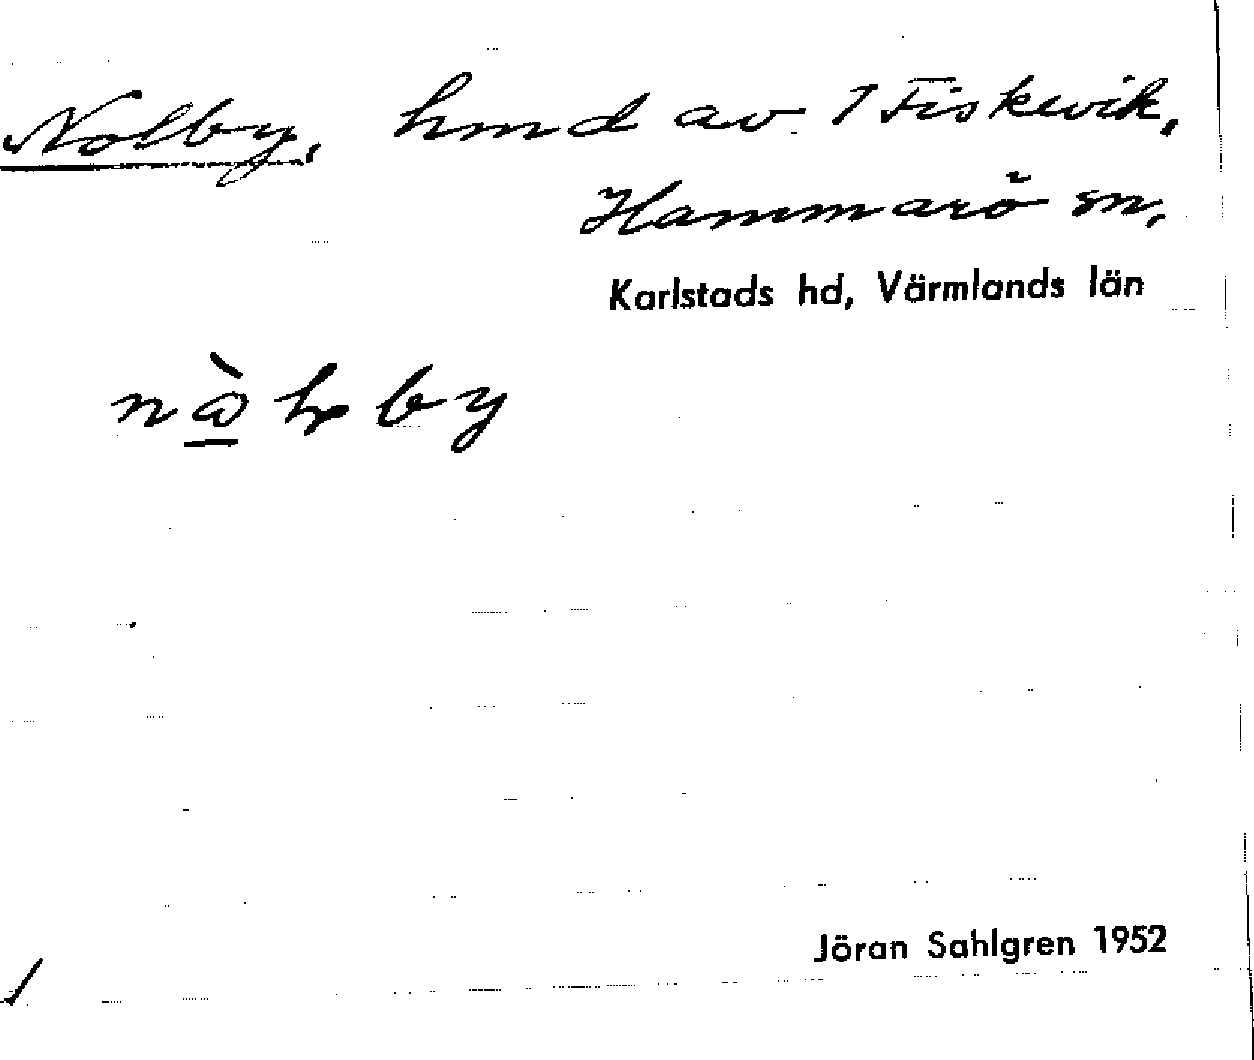 Nolby, hmd av 1 Fiskvik,
Hammarö sn,
Karlstads hd, Värmlands län
Jöran Sahlgren 1952